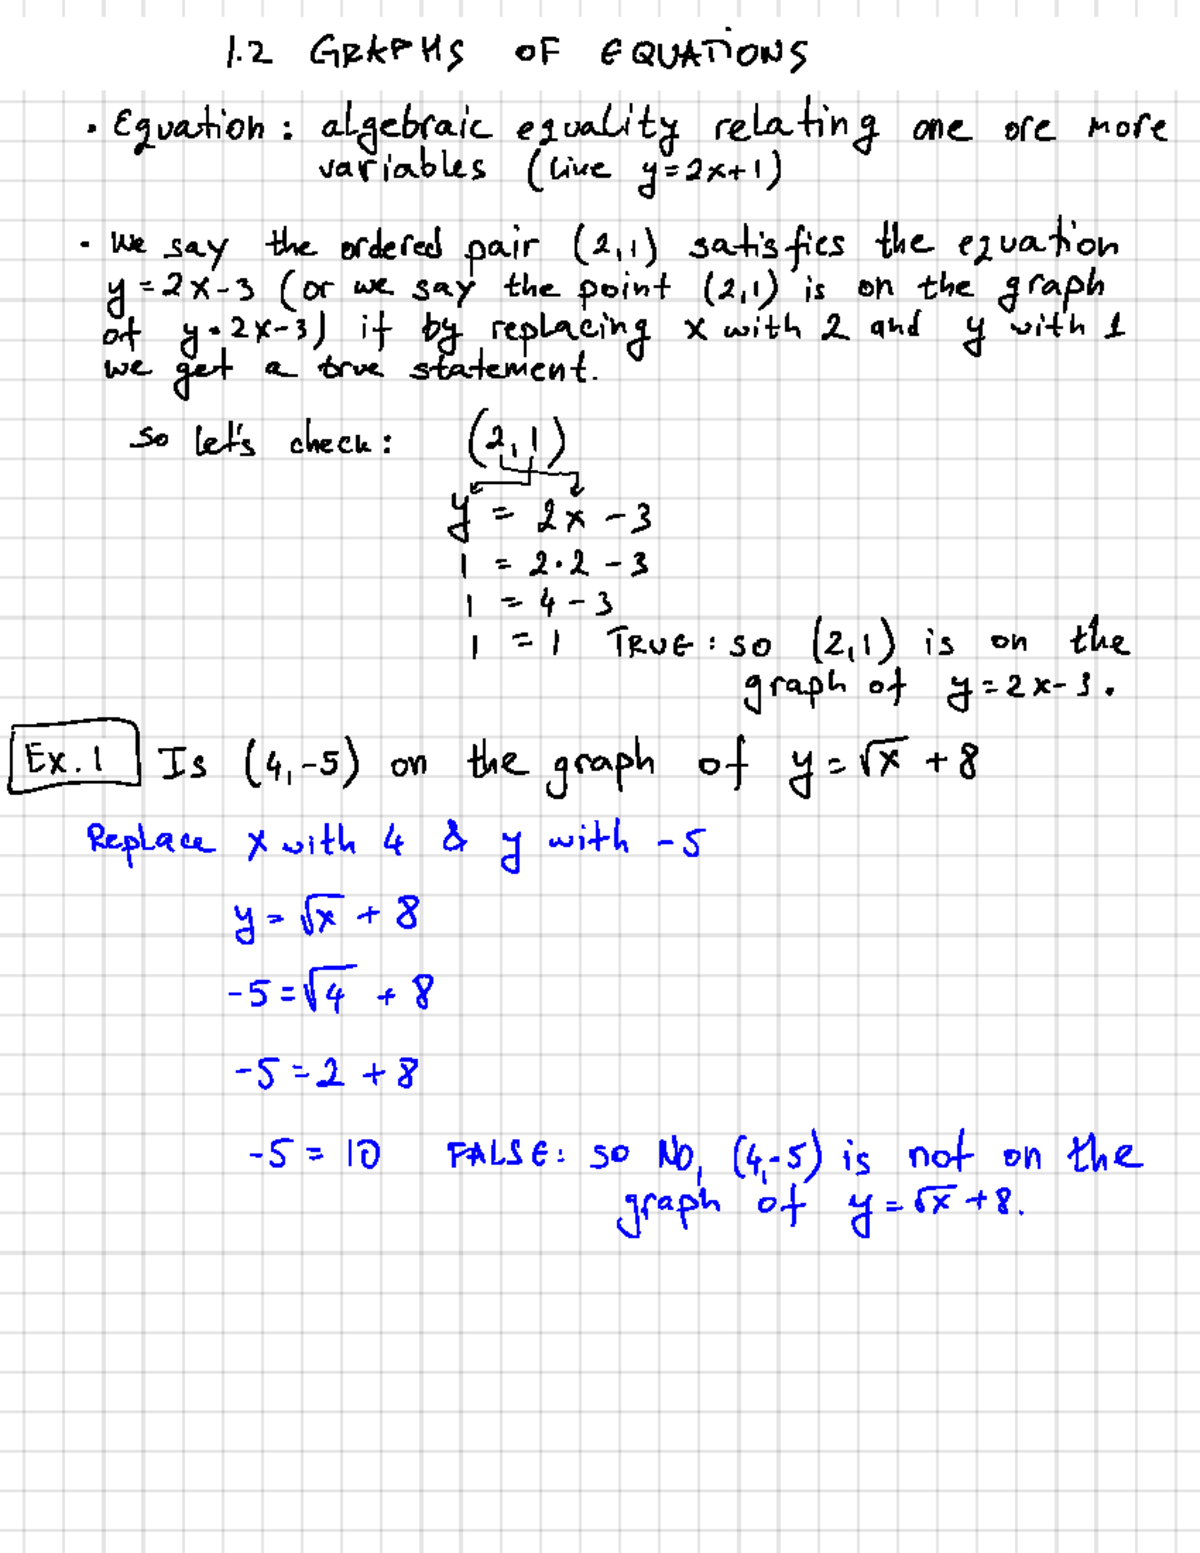 1.2 GRAPHS OF EQUATIONS
• Equation: algebraic equality relating one ore more
variables (like y=2x+1)
• We say the ordered pair (2,1) satisfies the equation
y=2x-3 (or we say the point (2,1) is on the graph
of y=2x-3) if by replacing x with 2 and y with 1
we get a true statement.
So let's check: (2,1)
y = 2x - 3
1 = 2·2 - 3
1 = 4 - 3
1 = 1 TRUE: so (2,1) is on the
graph of y=2x-3.
Ex. 1 Is (4,-5) on the graph of y=√x + 8
Replace x with 4 & y with -5
y = √x + 8
-5 = √4 + 8
-5 = 2 + 8
-5 = 10 FALSE: so NO, (4,-5) is not on the
graph of y=√x+8.